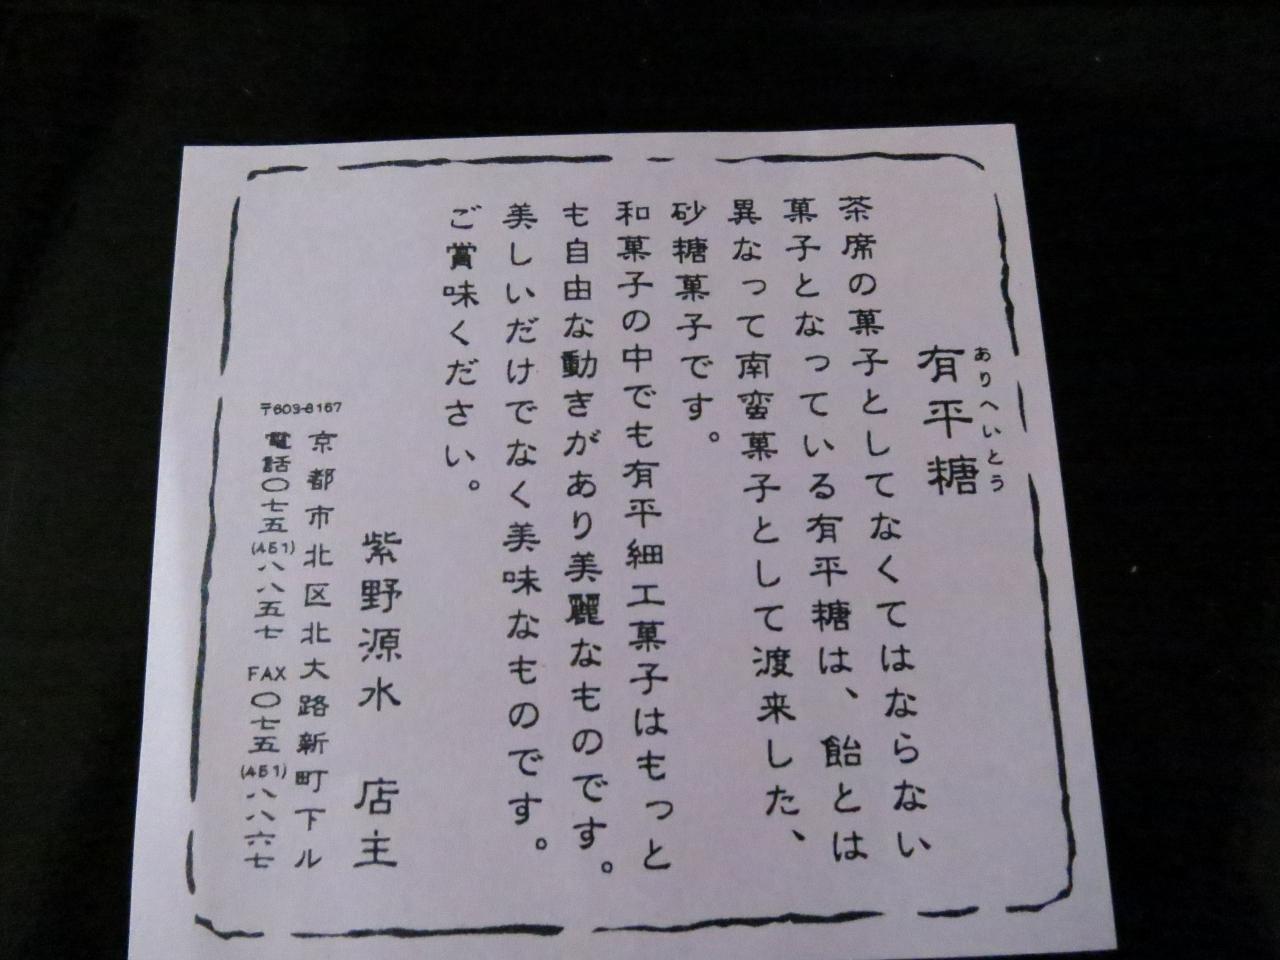 有平糖
ありへいとう
茶席の菓子としてなくてはならない
菓子となっている有平糖は、飴とは
異なって南蛮菓子として渡来した、
砂糖菓子です。
和菓子の中でも有平細工菓子はもっと
も自由な動きがあり美麗なものです。
美しいだけでなく美味なものです。
ご賞味ください。
紫野源水 店主
〒603-8167
京都市北区北大路新町下ル
電話〇七五(451)八八五七 FAX〇七五(451)八八六七